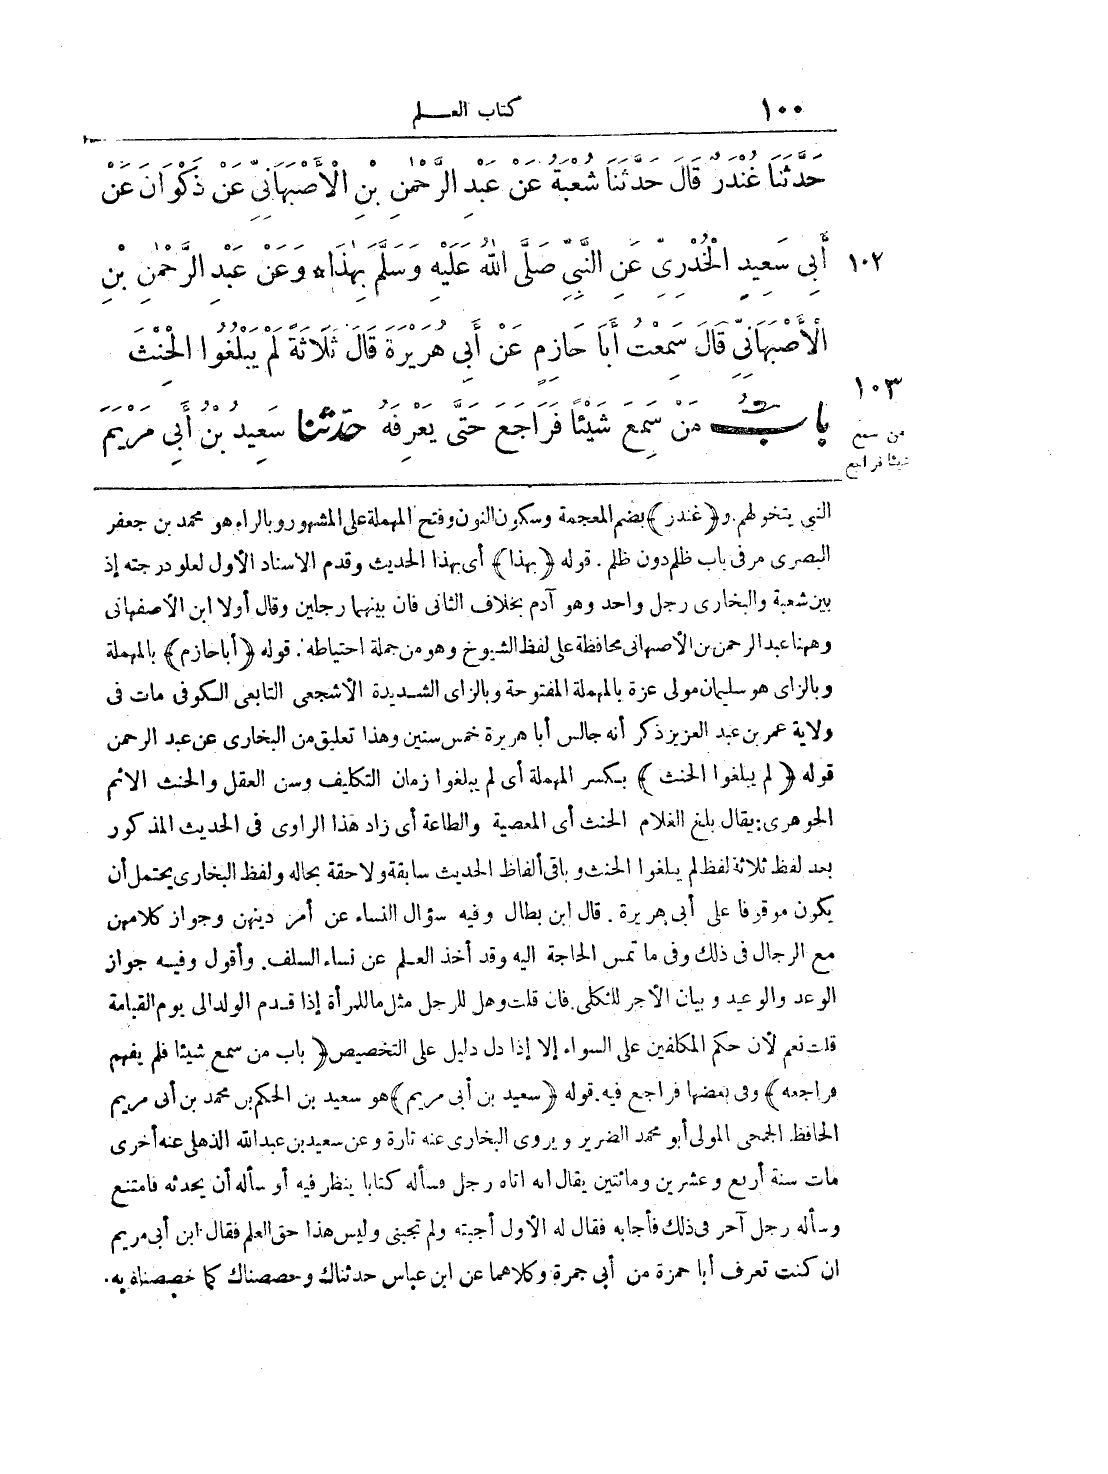 ١٠٠ كتاب العلم
حَدَّثَنَا غُنْدَرٌ قَالَ حَدَّثَنَا شُعْبَةُ عَنْ عَبْدِ الرَّحْمٰنِ بْنِ الْأَصْبَهَانِيِّ عَنْ ذَكْوَانَ عَنْ
١٠٢ أَبِي سَعِيدٍ الْخُدْرِيِّ عَنِ النَّبِيِّ صَلَّى اللهُ عَلَيْهِ وَسَلَّمَ بِهٰذَا * وَعَنْ عَبْدِ الرَّحْمٰنِ بْنِ
الْأَصْبَهَانِيِّ قَالَ سَمِعْتُ أَبَا حَازِمٍ عَنْ أَبِي هُرَيْرَةَ قَالَ ثَلَاثَةً لَمْ يَبْلُغُوا الْحِنْثَ
١٠٣
بَابُ مَنْ سَمِعَ شَيْئًا فَرَاجَعَ حَتَّى يَعْرِفَهُ حدّثنا سَعِيدُ بْنُ أَبِي مَرْيَمَ
من سمع
شيئا فراجع
النبي يتخولهم. و﴿غندر﴾ بضم المعجمة وسكون النون وفتح المهملة على المشهور وبالراء هو محمد بن جعفر
البصرى مر فى باب ظلم دون ظلم . قوله ﴿بهذا﴾ أى بهذا الحديث وقدم الاسناد الأول لعلو درجته إذ
بين شعبة والبخارى رجل واحد وهو آدم بخلاف الثانى فان بينهما رجلين وقال أولا ابن الأصفهانى
وههنا عبد الرحمن بن الأصبهانى محافظة على لفظ الشيوخ وهو من جملة احتياطه . قوله ﴿أبا حازم﴾ بالمهملة
وبالزاى هو سليمان مولى عزة بالمهملة المفتوحة وبالزاى الشديدة الأشجعى التابعى الكوفى مات فى
ولاية عمر بن عبد العزيز ذكر أنه جالس أبا هريرة خمس سنين وهذا تعليق من البخارى عن عبد الرحمن
قوله ﴿لم يبلغوا الحنث﴾ بكسر المهملة أى لم يبلغوا زمان التكليف وسن العقل والحنث الاثم
الجوهرى: يقال بلغ الغلام الحنث أى المعصية والطاعة أى زاد هذا الراوى فى الحديث المذكور
بعد لفظ ثلاثة لفظ لم يبلغوا الحنث و باقى ألفاظ الحديث سابقة ولاحقة بحاله ولفظ البخارى يحتمل أن
يكون موقوفا على أبى هريرة . قال ابن بطال وفيه سؤال النساء عن أمر دينهن وجواز كلامهن
مع الرجال فى ذلك وفى ما تمس الحاجة اليه وقد أخذ العلم عن نساء السلف. وأقول وفيه جواز
الوعد والوعيد و بيان الأجر للثكلى. فان قلت وهل للرجل مثل ما للمرأة إذا قدم الولد الى يوم القيامة
قلت نعم لأن حكم المكلفين على السواء إلا إذا دل دليل على التخصيص ﴿باب من سمع شيئا فلم يفهم
فراجعه﴾ وفى بعضها فراجع فيه. قوله ﴿سعيد بن أبى مريم﴾ هو سعيد بن الحكم بن محمد بن أبى مريم
الحافظ الجمحى المولى أبو محمد الضرير و يروى البخارى عنه تارة وعن سعيد بن عبد الله الذهلى عنه أخرى
مات سنة أربع وعشرين ومائتين يقال انه اتاه رجل فسأله كتابا ينظر فيه أو سأله أن يحدثه فامتنع
وسأله رجل آخر فى ذلك فأجابه فقال له الأول أجبته ولم تجبنى وليس هذا حق العلم فقال ابن أبى مريم
ان كنت تعرف أبا حمزة من أبى جمرة وكلاهما عن ابن عباس حدثناك وخصصناك كما خصصناه به.